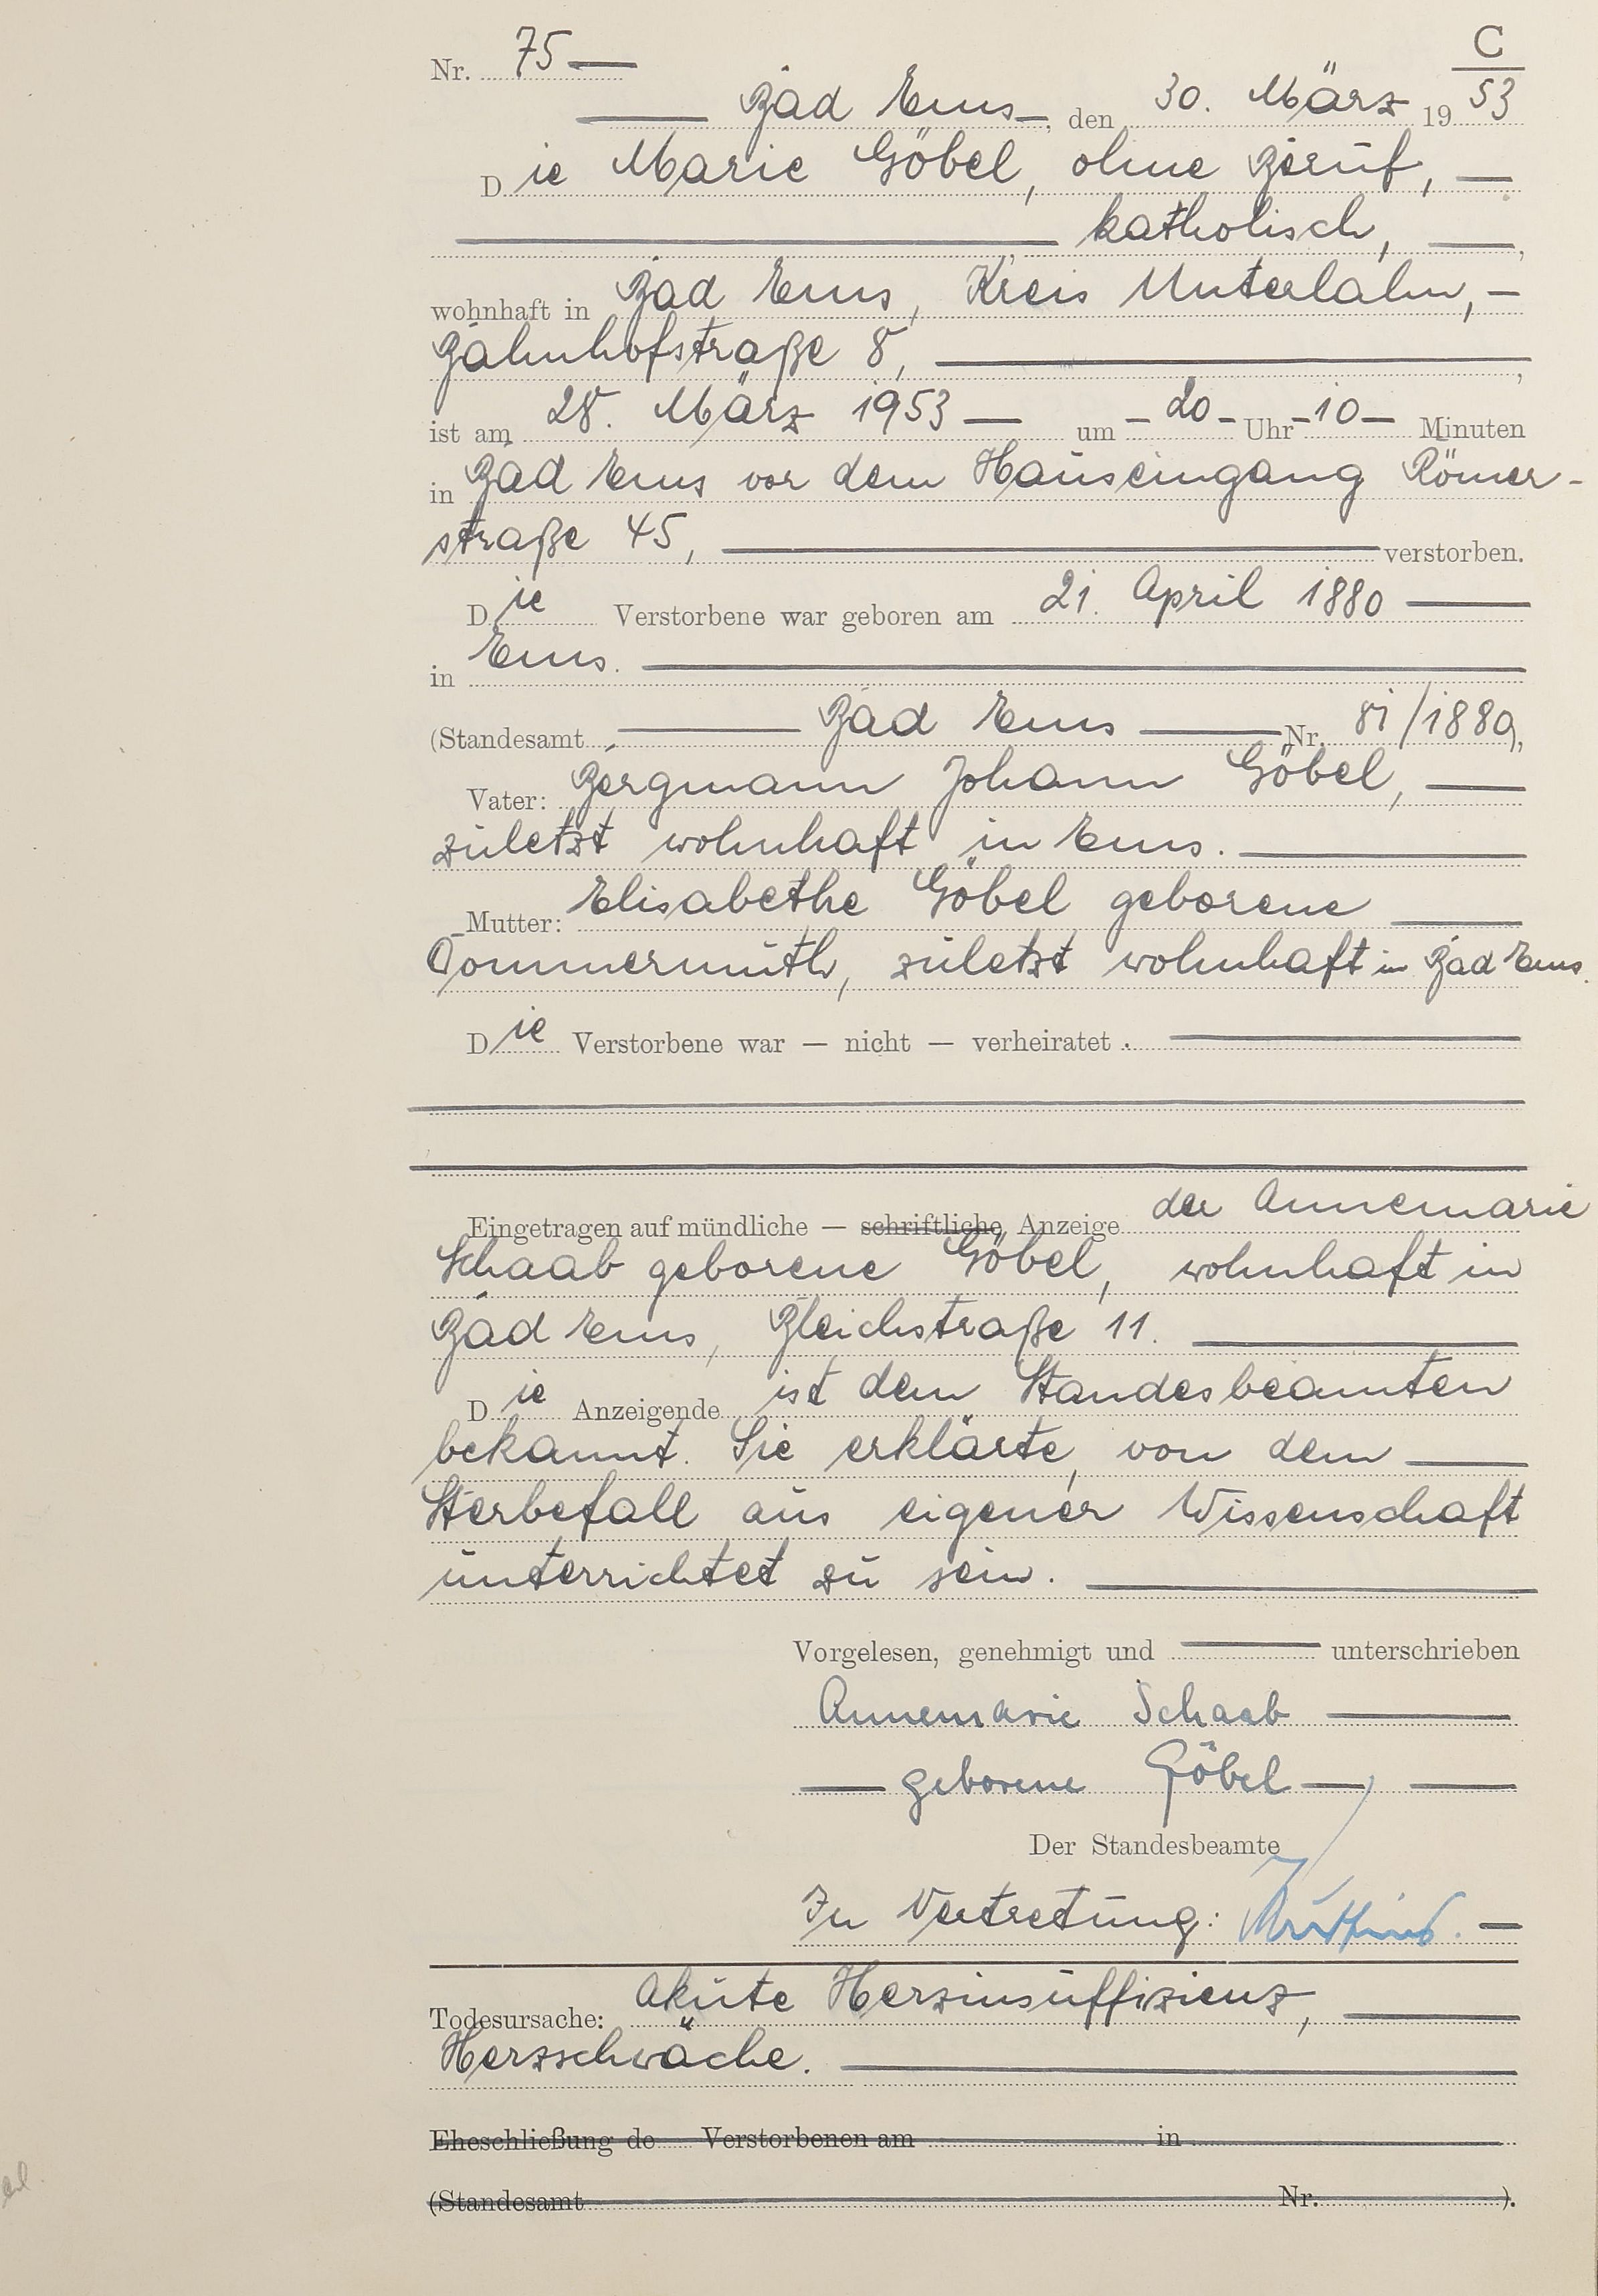 C
Nr. 75
Bad Ems, den 30. März 1953
Die Marie Göbel, ohne Beruf,
katholisch,
wohnhaft in Bad Ems, Kreis Unterlahn,
Bahnhofstraße 8,
ist am 28. März 1953 um 20 Uhr 10 Minuten
in Bad Ems vor dem Hauseingang Römer-
straße 45, verstorben.
Die Verstorbene war geboren am 21. April 1880
in Ems.
(Standesamt Bad Ems Nr. 81/1880),
Vater: Bergmann Johann Göbel,
zuletzt wohnhaft in Ems.
Mutter: Elisabethe Göbel geborene
Dommermuth, zuletzt wohnhaft in Bad Ems.
Die Verstorbene war — nicht — verheiratet.
Eingetragen auf mündliche — schriftliche Anzeige der Annemarie
Schaab geborene Göbel, wohnhaft in
Bad Ems, Bleichstraße 11.
Die Anzeigende ist dem Standesbeamten
bekannt. Sie erklärte, von dem
Sterbefall aus eigener Wissenschaft
unterrichtet zu sein.
Vorgelesen, genehmigt und unterschrieben
Annemarie Schaab
geborene Göbel
Der Standesbeamte
In Vertretung:
Todesursache: Akute Herzinsuffizienz,
Herzschwäche.
Eheschließung de Verstorbenen am in
(Standesamt Nr. ).